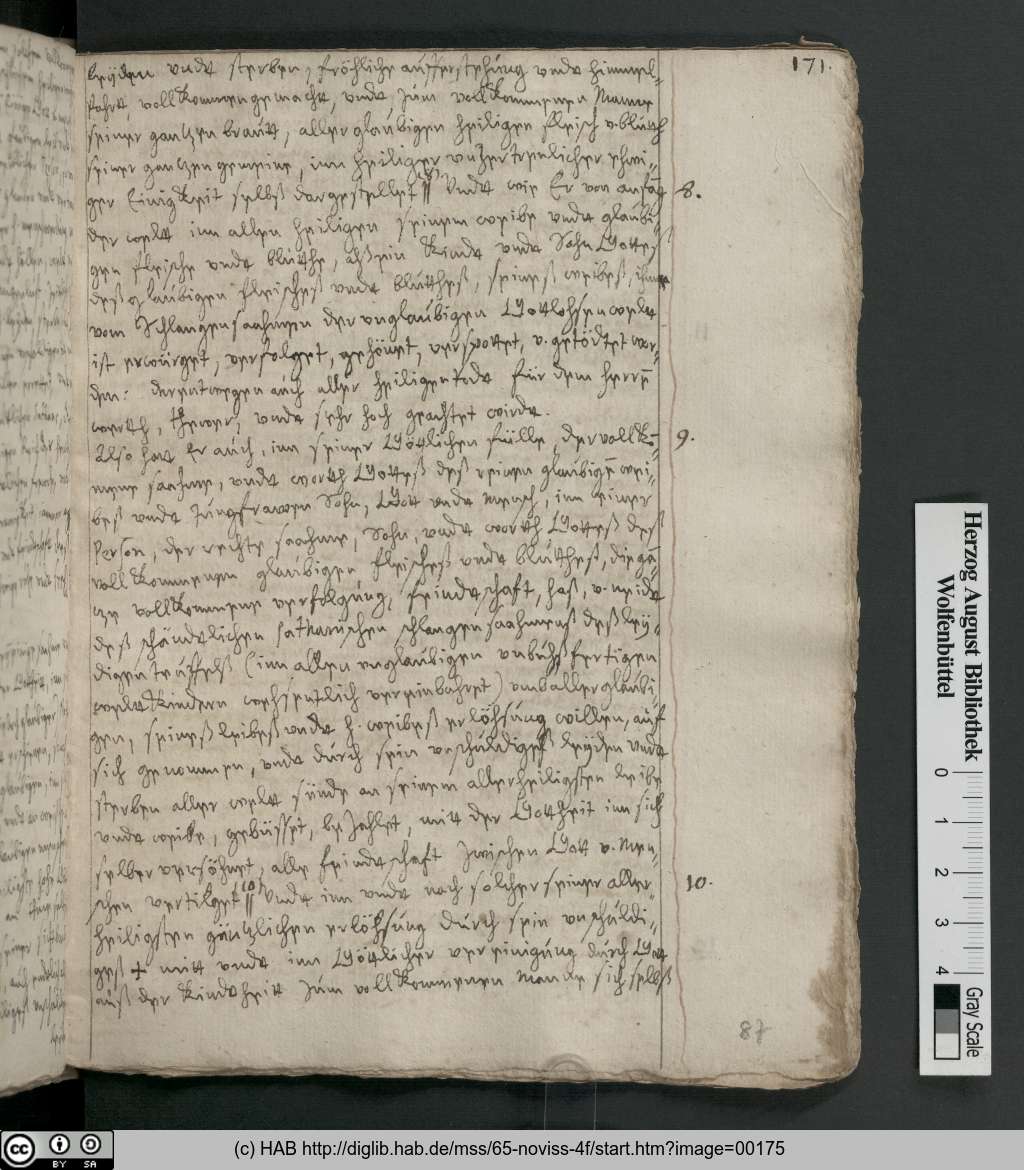 171.
leÿden vnndt sterben, fröhliche aufferstehung vnndt himmel-
fahrt, vollkommen gemacht, vnndt zum vollkommenen Manne
seiner gantzen braut, aller glaubigen heiligen fleisch v. bluth
seiner gantzen gemeine, inn heiliger vnzertrenlicher ehwi-
ger Einigkeit selbß dargestellet. Vndt wie Er von anfāg
8.
der welt inn allen heiligen seinem weibe vndt glaubi-
gen fleische vndt bluthe, alß ein Kindt vndt Sohn Gottes
deß glaubigen fleisches vndt bluthes, seines weibeß, ihme
vom Schlangensaahmen der vnglaubigen Gottlohsen welt
ist erwürget, verfolget, gehönet, verspottet, v. getödtet wor-
den: derentwegen auch aller heiligen todt für dem herrē
werth, thewer, vndt sehr hoch geachtet wirdt.
Also hat Er auch, inn seiner Göttlichen fülle, der vollkō-
9.
mene saahme, vndt worth Gotteß deß reinen glaubigē wei-
bes vndt Jungfrawen Sohn, Gott vndt mensch, inn einer
Person, der rechte saahme, Sohn, vndt worth Gotteß deß
vollkommenen glaubigen fleisches vndt bluthes, die gā-
tze vollkommene verfolgung, feindtschaft, haß, v. neidt
deß schändtlichen sathanischen schlangensaahmenß deß leÿ-
digen teuffelß (inn allen vnglaubigen vnbuhßfertigen
weltkindern wehsentlich vereinbahret) vmb aller glaubi-
gen, seineß leibeß vndt h. weibeß erlöhsung willen, auf
sich genommen, vndt durch sein vnschuldigeß leÿden vndt
sterben aller welt sünde an seinem allerheiligsten leibe
vndt weibe, gebüsset, bezahlet, mitt der Gottheit inn sich
selber versöhnet, alle feindtschaft zwischen Gott v. men-
schen vertilget. Vndt inn vndt nach solcher seiner aller-
10.
heiligsten gäntzlichen erlöhsung durch sein vnschuldi-
geß + mitt vndt inn Göttlicher vereinigung durch Gott
auß der Kindtheit zum vollkommenen manne sich selbß
87
Herzog August Bibliothek
Wolfenbüttel
0 1 2 3 4
Gray Scale
cc BY SA
(c) HAB http://diglib.hab.de/mss/65-noviss-4f/start.htm?image=00175